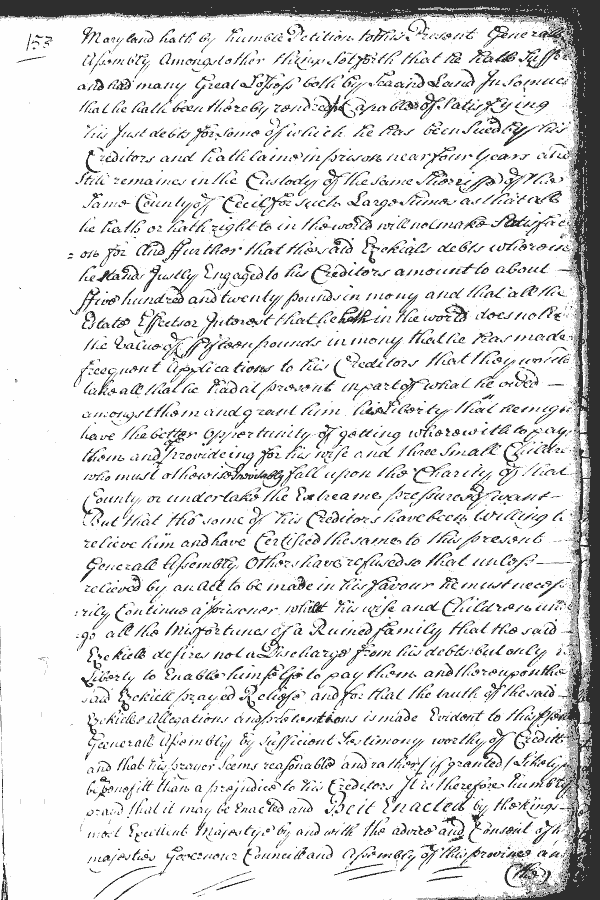 153
Maryland hath by humble Petition to this Present Generall
Assembly Amongst other things Set forth that he hath Suffer
and had many Great Losses both by Sea and Land In Somuch
that he hath been thereby rendred Capable of Satisfying
his Just debts for some of which he has been Sued by his
Creditors and hath laine in prison near four Years and
Still remaines in the Custody of the same Sheriffe of the
same County of Cecil for such Large Sumes as that all
he hath or hath right to in the world will not make Satisfac
= on for And ffurther that the said Ezekials debts wherein
he stands Justly Engaged to his Creditors amount to about —
ffive hundred and twenty pounds in mony and that all the
Estate Effects or Interest that he hath in the world does not
the Value of ffifteen pounds in mony that he has made
frequent Applications to his Creditors that they would
take all that he had at present in part of what he owed —
amongst them and grant him his Liberty that he migh
have the better Opportunity of getting wherewith to pay
them and Provideing for his wife and three Small Children
who must otherwise Inevitably fall upon the Charity of that
County or undertake the Extreame pressures of want —
But that tho some of his Creditors have been Willing to
relieve him and have Certified the same to this present —
Generall Assembly Others have refused so that unless —
relieved by an Act to be made in his favour he must necess
rily Continue a prisoner whilst his wife and Children un
go all the Misfortunes of a Ruined family that the said —
Ezekiell desires not a Discharge from his debts but only
Liberty to Enable himselfe to pay them and thereupon the
said Ezekiell prayed Reliefe and for that the truth of the said —
Ezekiells Allegations and pretentions is made Evident to this
Generall Assembly by Sufficient Testimony worthy of Creditt
and that his prayer seems reasonable and rather if granted Likely
be a benefitt than a prejudice to his Creditors It is therefore humbly
prayd that it may be Enacted and Be it Enacted by the Kings —
most Excellent Majestye by and with the advice and Consent of
majesties Governour Councill and Assembly of this province an
(the)